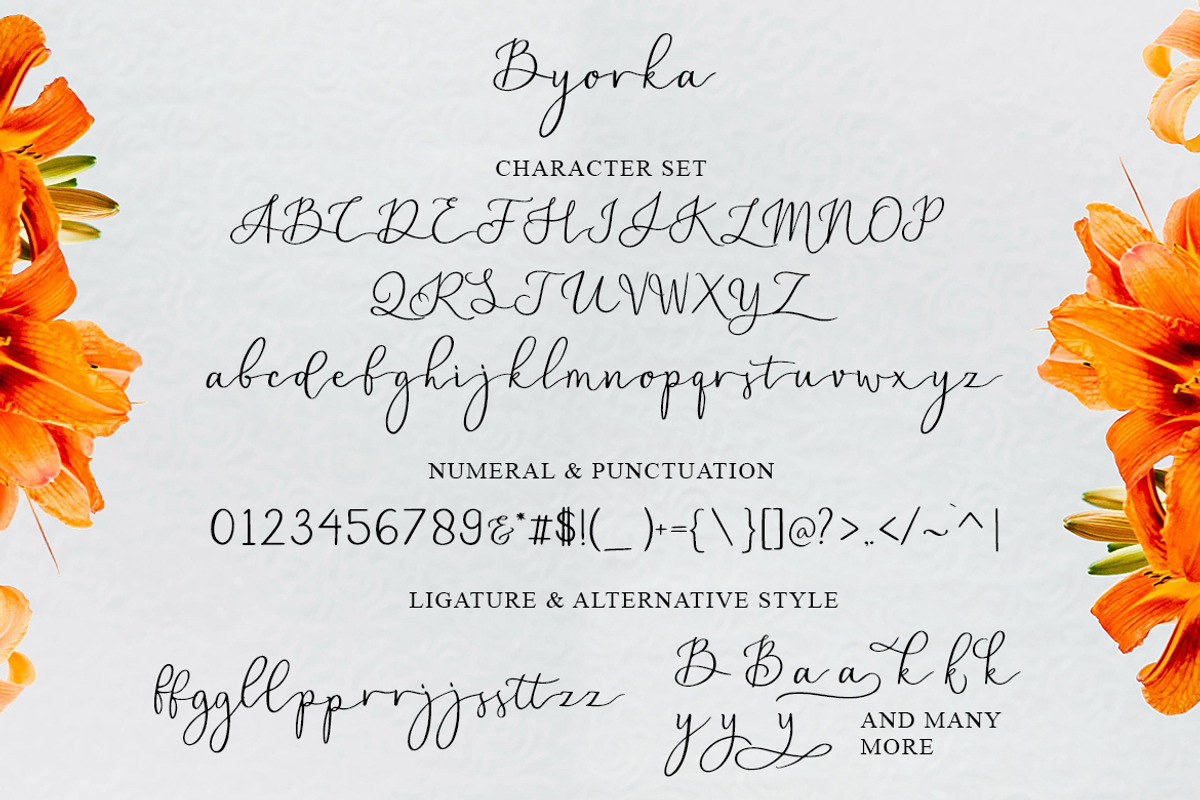 Byorka
CHARACTER SET
ABCDEFHIJKLMNOP
QRSTUVWXYZ
abcdefghijklmnopqrstuvwxyz
NUMERAL & PUNCTUATION
0123456789&*#$!(_ )+={ \ }[]@?>,.</~`^ |
LIGATURE & ALTERNATIVE STYLE
ffggllpprrjjssttzz
B B a a k k k
y y y
AND MANY
MORE